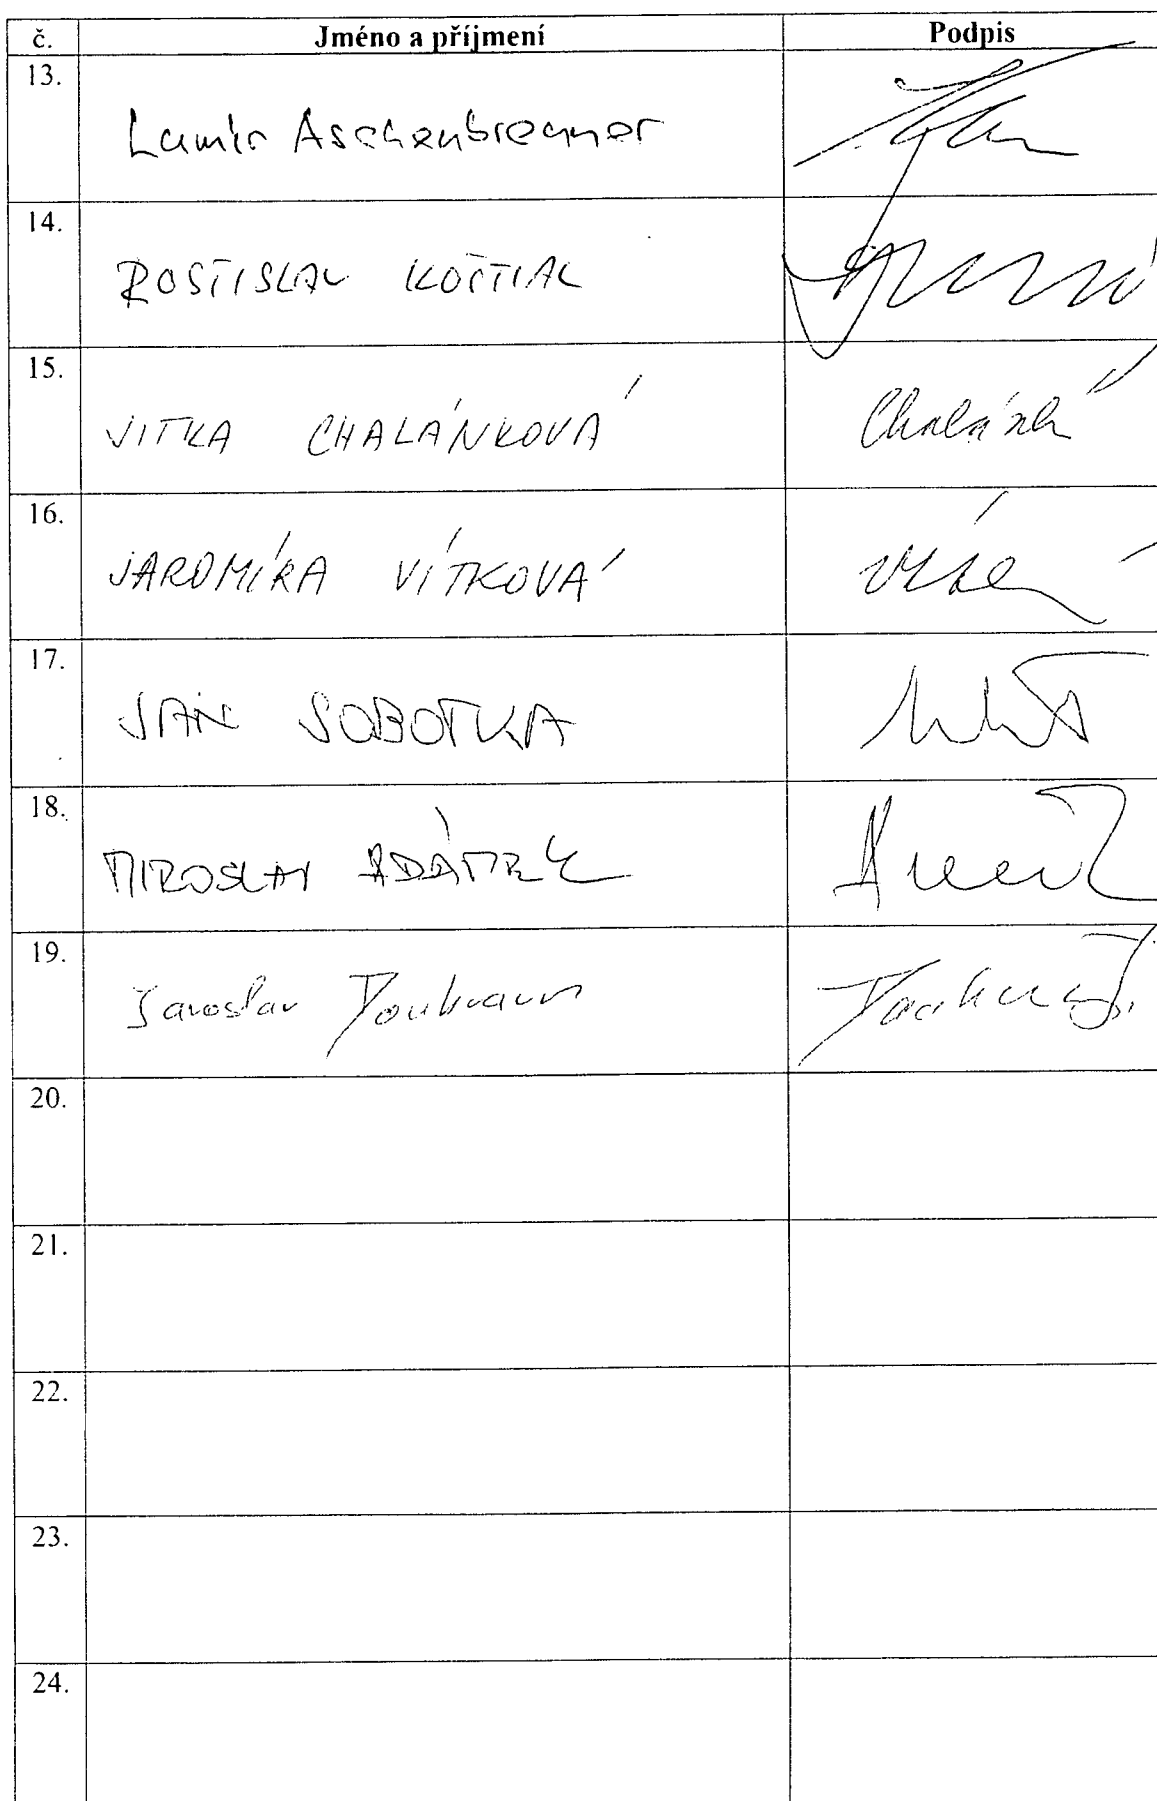 č. Jméno a příjmení Podpis
13. Lumír Aschenbrenner
14. ROSTISLAV KOŠTIAL
15. JITKA CHALÁNKOVÁ Chalánk
16. JAROMÍRA VÍTKOVÁ
17. JAN SOBOTKA
18. MIROSLAV ADÁMEK
19. Jaroslav Doubrava
20.
21.
22.
23.
24.